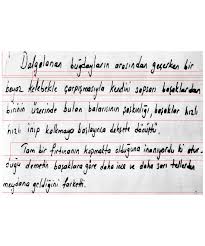 Dalgalanan buğdayların arasından geçerken bir
beyaz kelebekle çarpışmasıyla kendini sapsarı başaklardan
birinin üzerinde bulan balarısının şaşkınlığı, başaklar hızlı
hızlı inip kalkmaya başlayınca dehşete dönüştü.
Tam bir fırtınanın kopmakta olduğuna inanıyordu ki otur-
duğu demetin başaklara göre daha ince ve daha sarı tellerden
meydana geldiğini farketti.